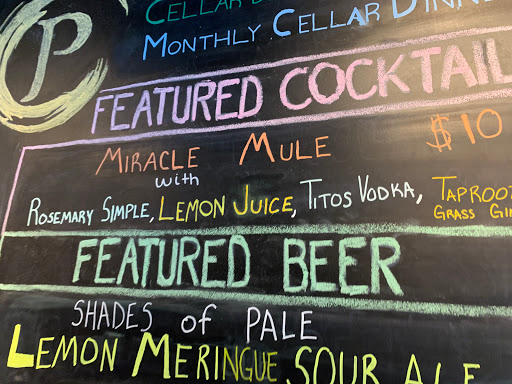 P
CELLAR
MONTHLY CELLAR DINNE
FEATURED COCKTAIL
MIRACLE MULE $10
with
ROSEMARY SIMPLE, LEMON JUICE, TITOS VODKA, TAPROOT
GRASS GIN
FEATURED BEER
SHADES of PALE
LEMON MERINGUE SOUR ALE